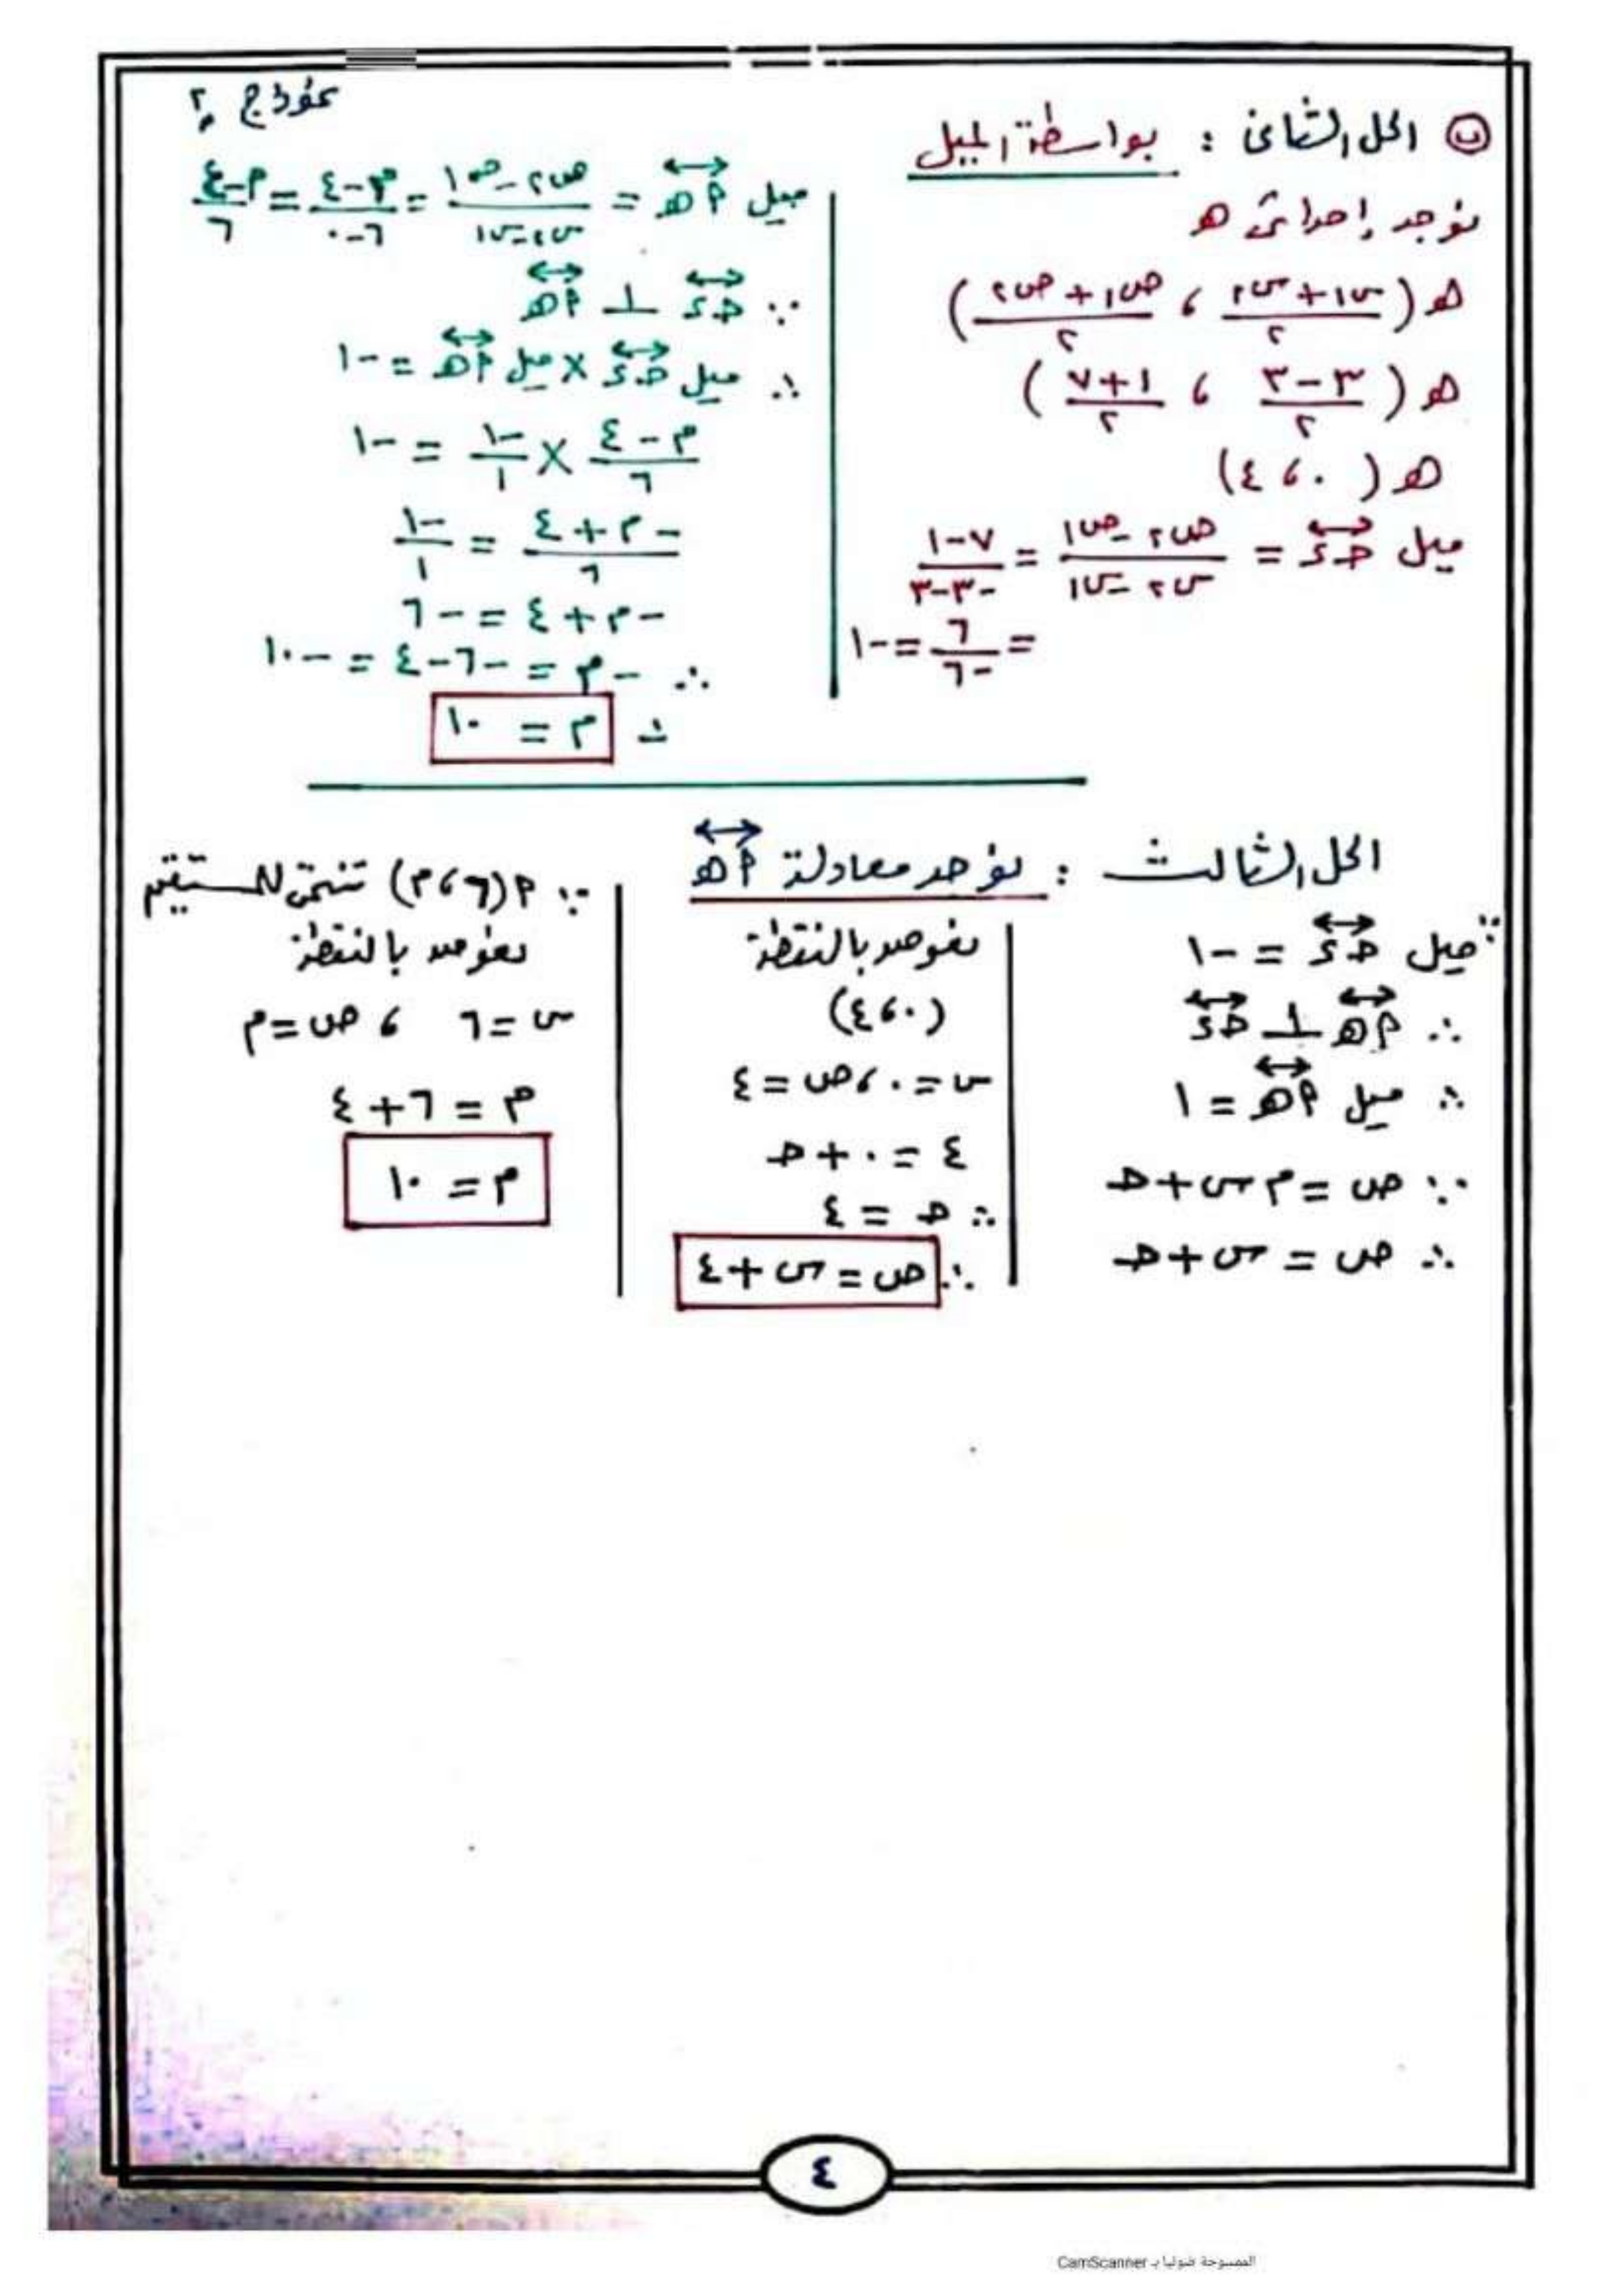 نموذج ٢
ب الحل الثانى : بواسطة الميل
نوجد إحداثى ه
ه ( س١+س٢/٢ ، ص١+ص٢/٢ )
ه ( ٣-٣/٢ ، ١+٧/٢ )
ه ( ٠ ، ٤ )
ميل حـ ء = ص٢-ص١/س٢-س١ = ٧-١/-٣-٣
= ٦/-٦ = -١
ميل م ه = ص٢-ص١/س٢-س١ = م-٤/٦-٠ = م-٤/٦
∵ حـ ء ⊥ م ه
∴ ميل حـ ء × ميل م ه = -١
م-٤/٦ × -١/١ = -١
-م+٤/٦ = -١/١
-م+٤ = -٦
∴ -م = -٦-٤ = -١٠
∴ م = ١٠
الحل الثالث : نوجد معادلة م ه
∵ ميل حـ ء = -١
∴ م ه ⊥ حـ ء
∴ ميل م ه = ١
∵ ص = م س + حـ
∴ ص = س + حـ
نعوض بالنقطة
(٠ ، ٤)
س = ٠ ، ص = ٤
٤ = ٠ + حـ
∴ حـ = ٤
∴ ص = س + ٤
∵ م (٦ ، م) تنتمى للمستقيم
نعوض بالنقطة
س = ٦ ، ص = م
م = ٦ + ٤
م = ١٠
٤
الممسوحة ضوئيا بـ CamScanner